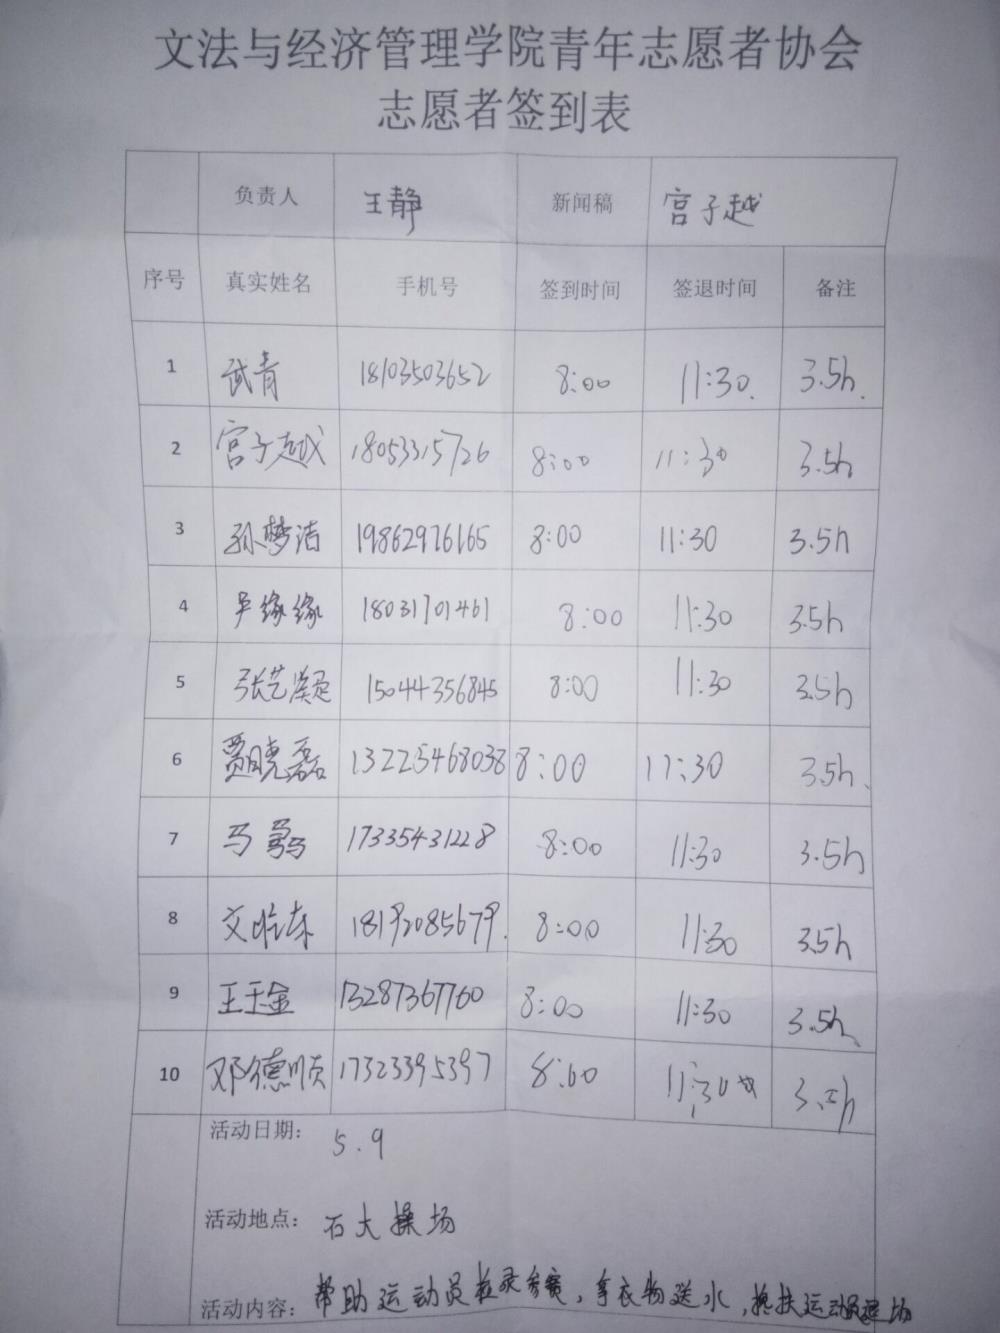 文法与经济管理学院青年志愿者协会
志愿者签到表
负责人 王静 新闻稿 宫子越
序号 真实姓名 手机号 签到时间 签退时间 备注
1 武青 18103503652 8:00 11:30 3.5h
2 宫子越 18053315726 8:00 11:30 3.5h
3 孙梦洁 19862976165 8:00 11:30 3.5h
4 尹缘缘 18031701461 8:00 11:30 3.5h
5 张艺凝 15044356845 8:00 11:30 3.5h
6 贾晓磊 13225468038 8:00 11:30 3.5h
7 马 17335431228 8:00 11:30 3.5h
8 文 18192085679 8:00 11:30 3.5h
9 王玉金 13287367760 8:00 11:30 3.5h
10 邓德顺 17323395397 8:00 11:30 3.5h
活动日期: 5.9
活动地点: 石大操场
活动内容: 帮助运动员检录参赛,拿衣物送水,搀扶运动员退场